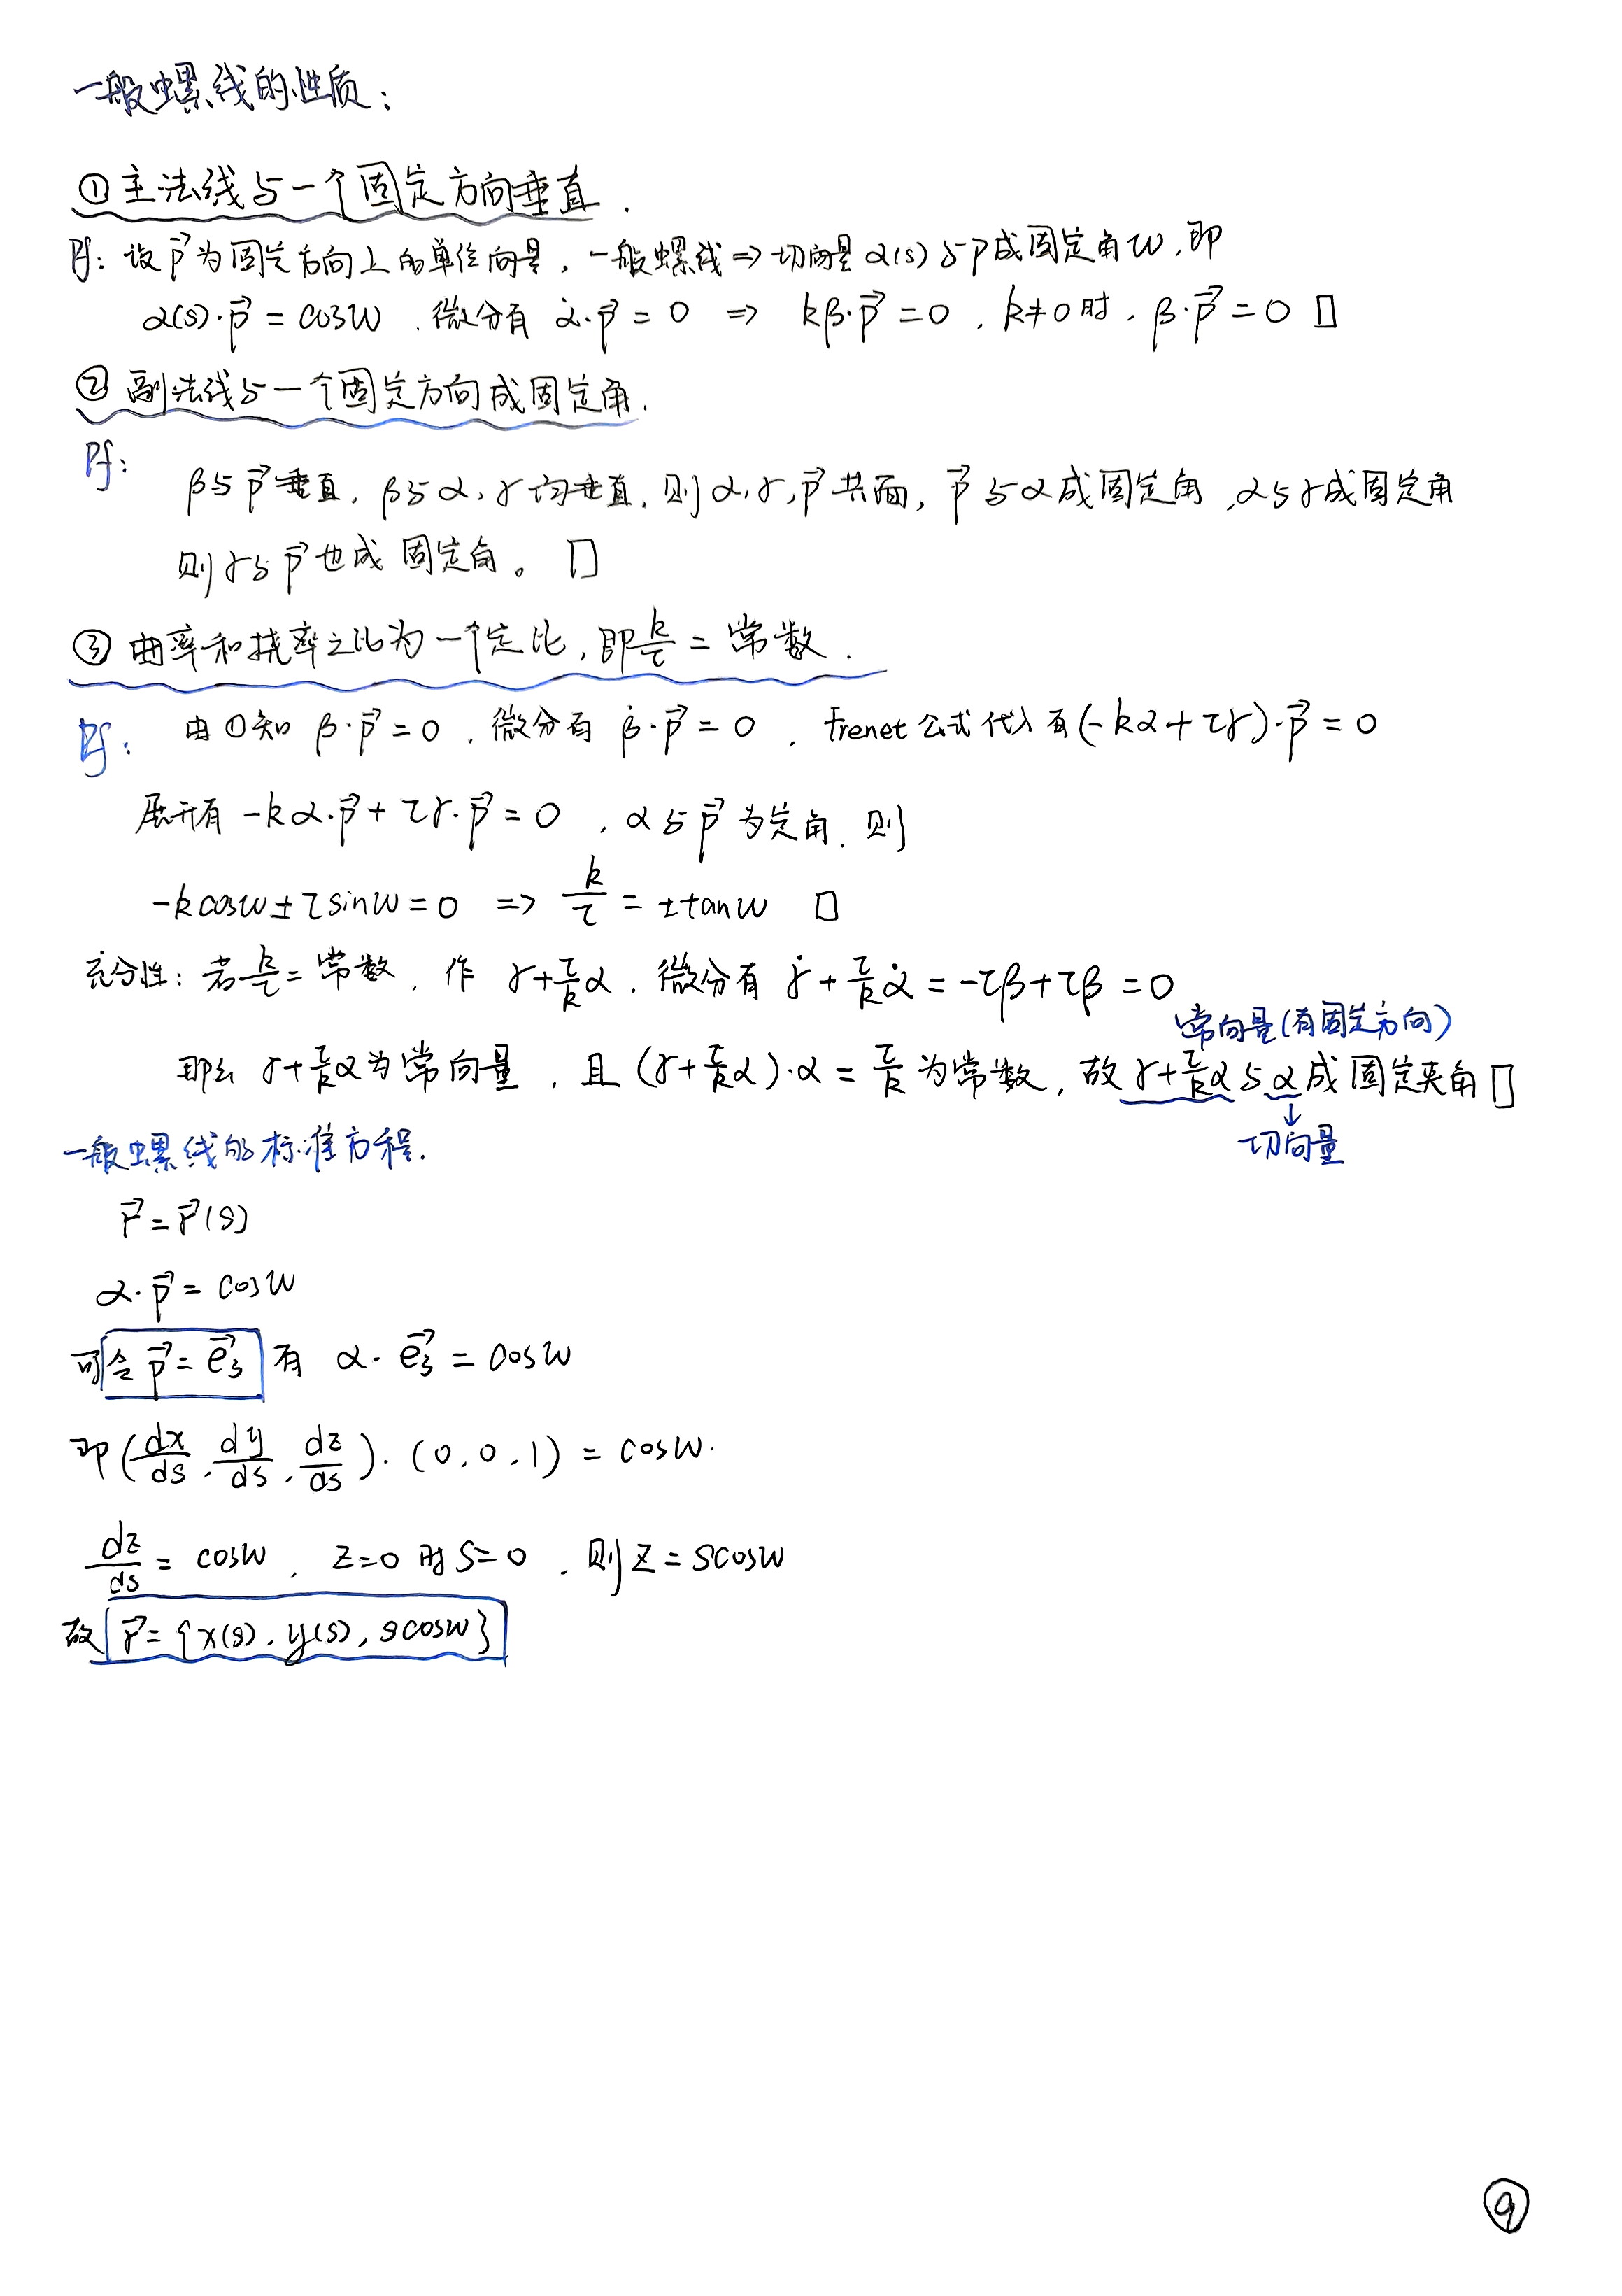 一般螺线的性质:
① 主法线与一个固定方向垂直.
Pf: 设 p⃗ 为固定方向上的单位向量, 一般螺线 ⇒ 切向量 α(s) 与 p 成固定角 w, 即
α(s)·p⃗ = cosw. 微分有 α̇·p⃗ = 0 ⇒ kβ·p⃗ = 0, k≠0时, β·p⃗ = 0 □
② 副法线与一个固定方向成固定角.
Pf:
β与p⃗垂直, β与α, γ均垂直, 则 α, γ, p⃗ 共面, p⃗ 与α成固定角, α与γ成固定角
则γ与p⃗也成固定角。 □
③ 曲率和挠率之比为一个定比, 即 k/τ = 常数.
Pf: 由①知 β·p⃗ = 0, 微分有 β̇·p⃗ = 0, Frenet公式代入有 (-kα+τγ)·p⃗ = 0
展开有 -kα·p⃗ + τγ·p⃗ = 0, α与p⃗为定角. 则
-kcosw ± τsinw = 0 ⇒ k/τ = ±tanw □
充分性: 若 k/τ = 常数, 作 γ+τ/k α. 微分有 γ̇ + τ/k α̇ = -τβ+τβ = 0
常向量(有固定方向)
那么 γ+τ/k α为常向量, 且 (γ+τ/k α)·α = τ/k 为常数, 故 γ+τ/k α 与 α 成固定夹角 □
↓
切向量
一般螺线的标准方程.
r⃗ = r⃗(s)
α·p⃗ = cosw
可令 p⃗ = e⃗₃ 有 α·e⃗₃ = cosw
即 (dx/ds, dy/ds, dz/ds)·(0, 0, 1) = cosw.
dz/ds = cosw, z=0时s=0, 则z = scosw
故 r⃗ = {x(s), y(s), scosw}
⑨